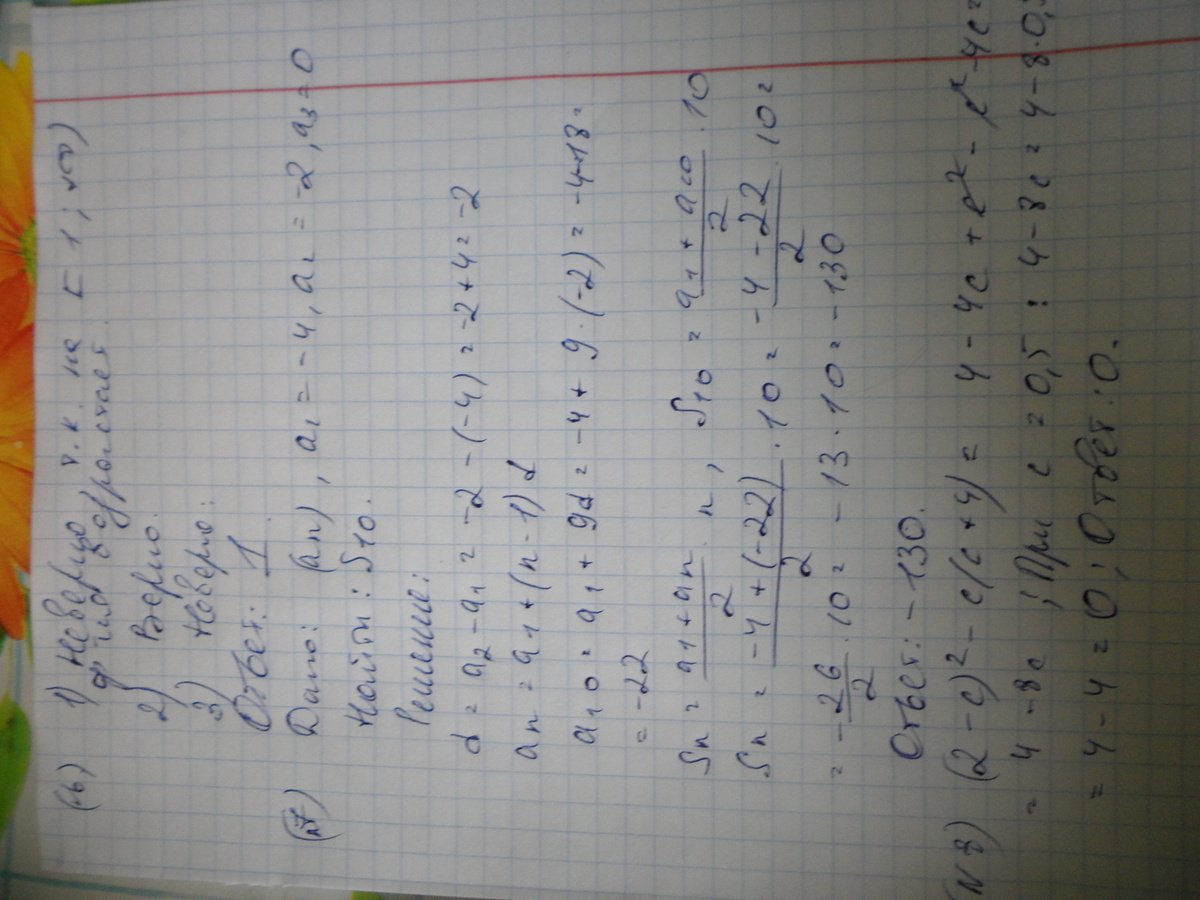 (6) 1) Неверно т.к. на [1; +∞)
ф-ция возрастает.
2) Верно.
3) Неверно.
Ответ: 1
(7) Дано: (an), a1 = -4, a2 = -2, a3 = 0
Найти: S10.
Решение:
d = a2 - a1 = -2 - (-4) = -2+4 = -2
an = a1 + (n-1)d
a10 = a1 + 9d = -4 + 9·(-2) = -4-18 =
= -22
Sn = (a1+an)/2 · n, S10 = (a1+a10)/2 · 10
Sn = (-4+(-22))/2 · 10 = (-4-22)/2 · 10 =
= -26/2 · 10 = -13·10 = -130
Ответ: -130.
(N8) (2-c)² - c(c+4) = 4 - 4c + c² - c² - 4c =
= 4 - 8c ; При c = 0,5 : 4 - 8c = 4 - 8·0,
= 4 - 4 = 0; Ответ: 0.